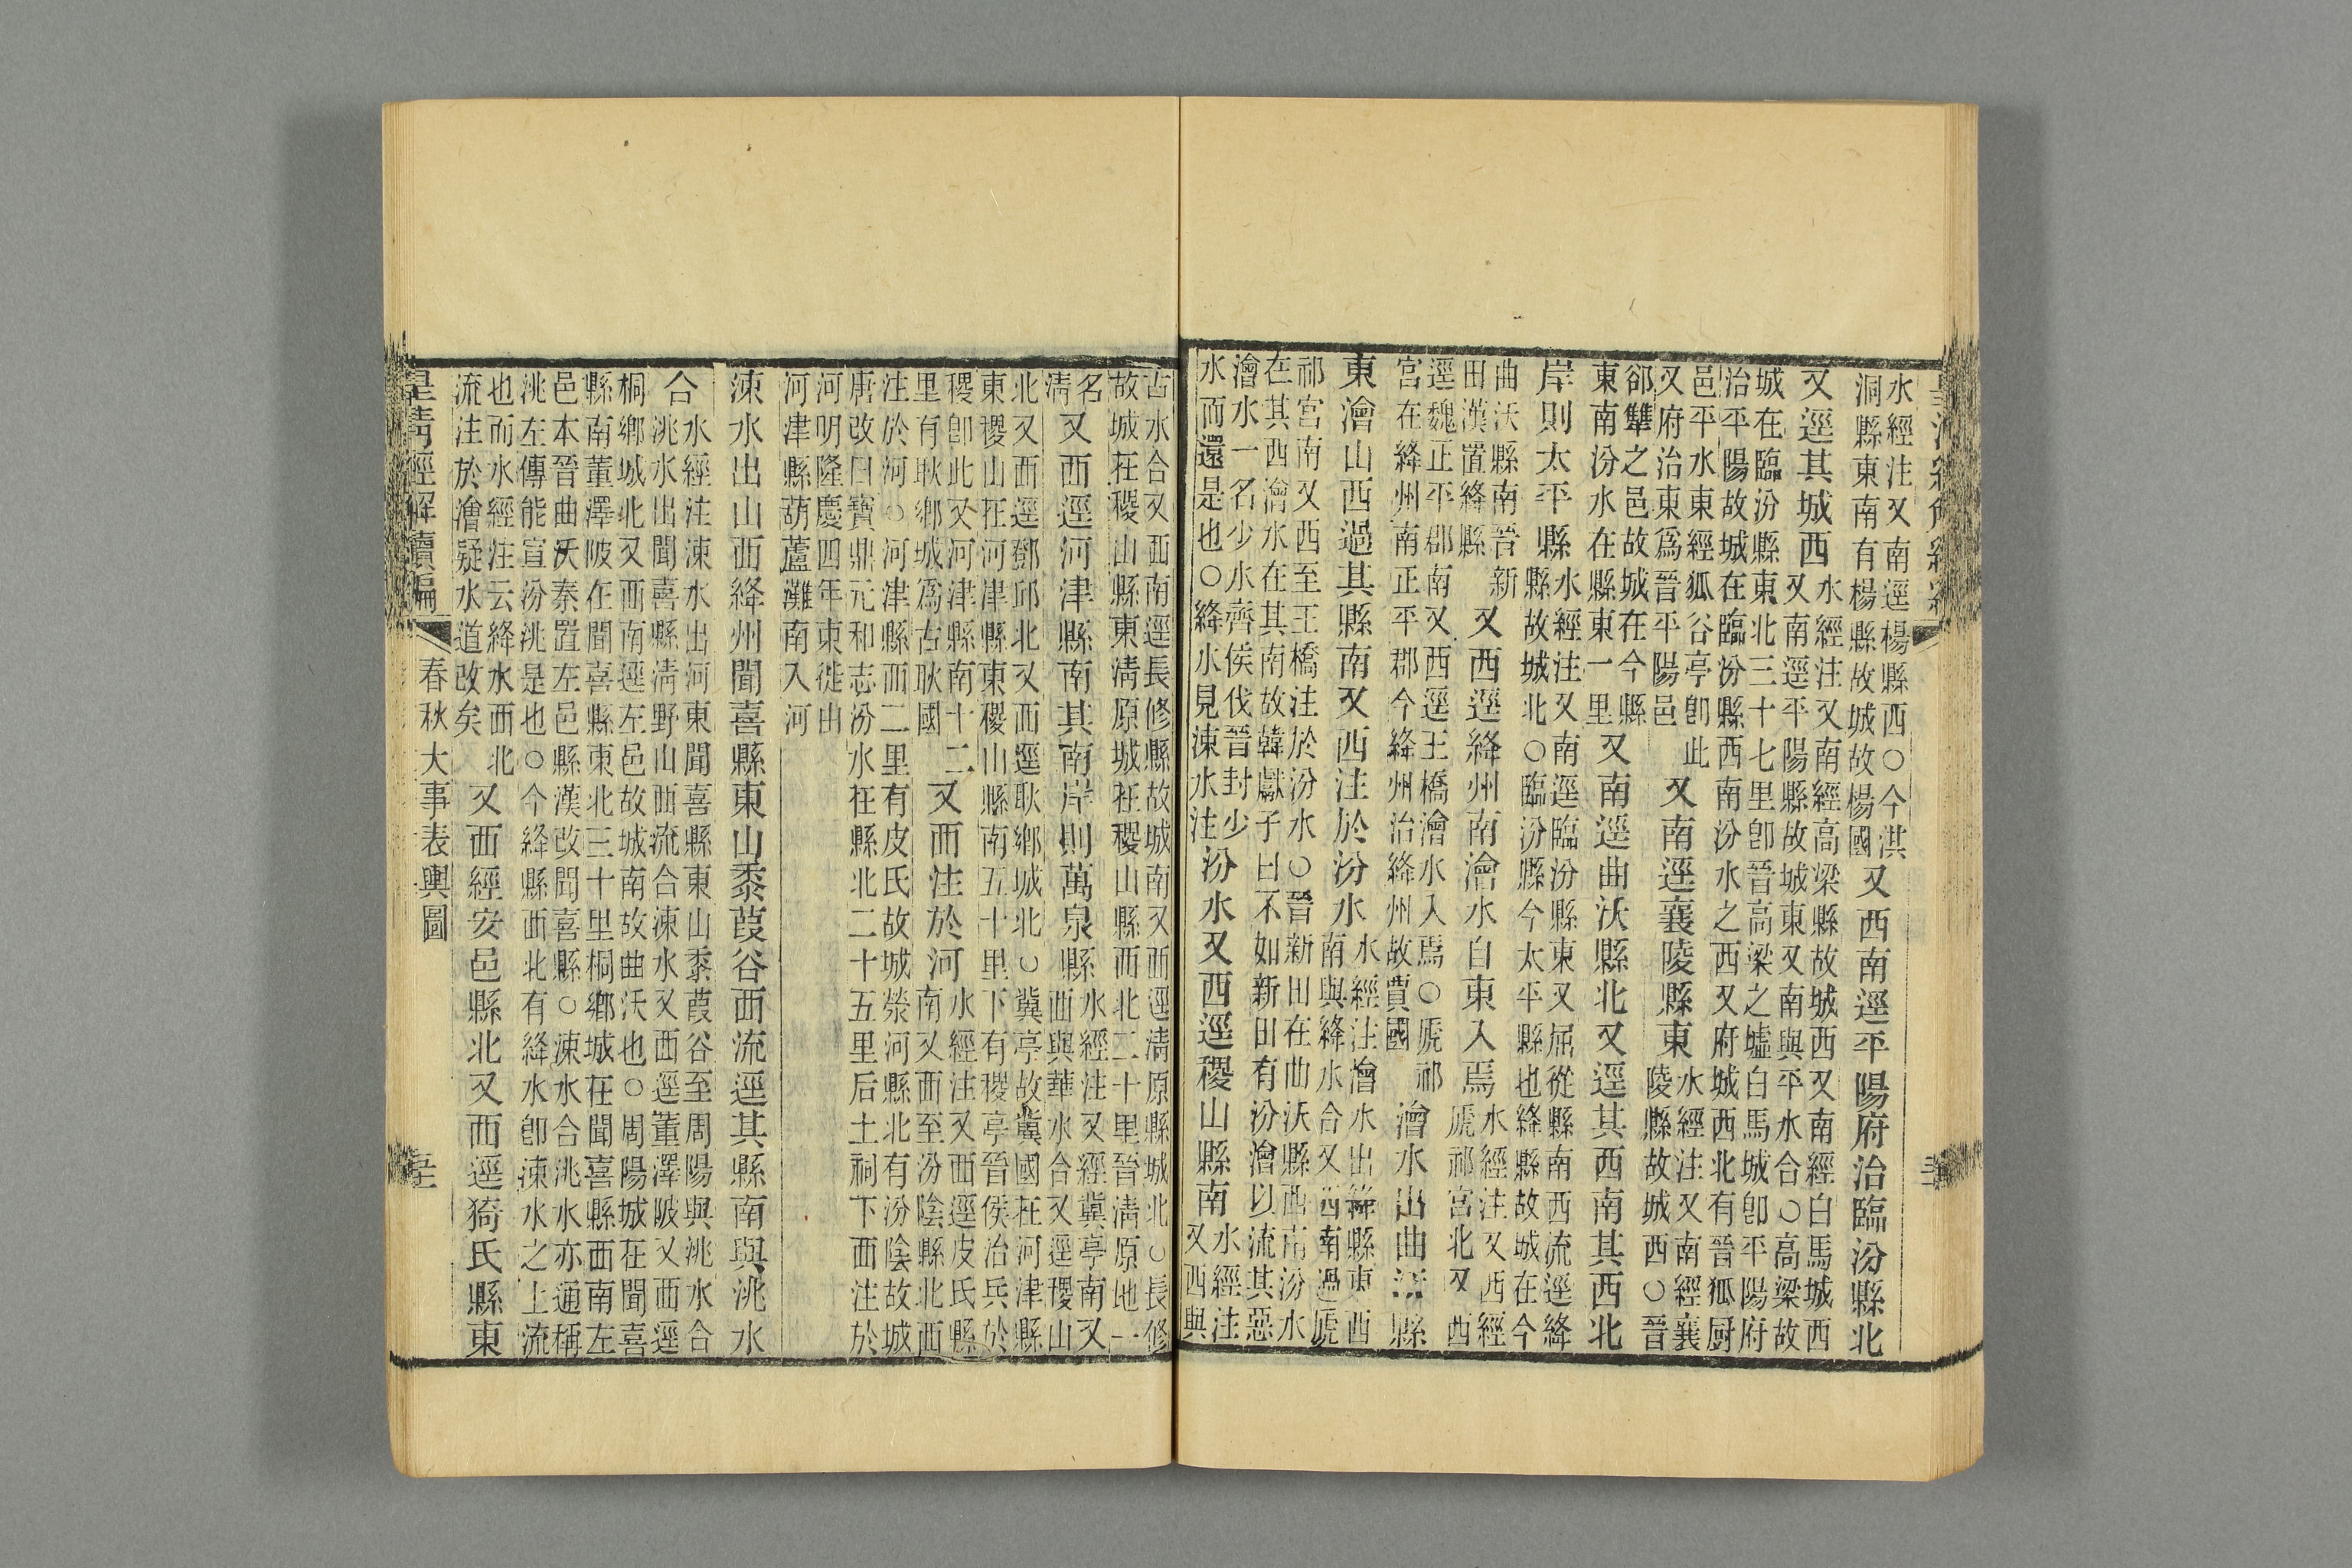 水經注又南逕楊縣西○今洪
洞縣東南有楊縣故城故楊國
又西南逕平陽府治臨汾縣北
又逕其城西
水經注又南經高梁縣故城西又南經白馬城西
又南逕平陽縣故城東又南與平水合○高梁故
城在臨汾縣東北三十七里卽晉高梁之墟白馬城卽平陽府
治平陽故城在臨汾縣西南汾水之西又府城西北有晉狐厨
邑平水東經狐谷亭卽此
又府治東爲晉平陽邑
又南逕襄陵縣東
水經注又南經襄
陵縣故城西○晉
郤犨之邑故城在今縣
東南汾水在縣東一里
又南逕曲沃縣北又逕其西南其西北
岸則太平縣
水經注又南逕臨汾縣東又屈從縣南西流逕絳
縣故城北○臨汾縣今太平縣也絳縣故城在今
曲沃縣南晉新
田漢置絳縣
又西逕絳州南澮水自東入焉
水經注又西經
虒祁宮北又西
逕魏正平郡南又西逕王橋澮水入焉○虒祁
宮在絳州南正平郡今絳州治絳州故賈國
澮水出曲沃縣
東澮山西過其縣南又西注於汾水
水經注澮水出絳縣東西
南與絳水合又西南過虒
祁宮南又西至王橋注於汾水○晉新田在曲沃縣西南汾水
在其西澮水在其南故韓獻子曰不如新田有汾澮以流其惡
澮水一名少水齊侯伐晉封少
水而還是也○絳水見涑水注
汾水又西逕稷山縣南
水經注
又西與
古水合又西南逕長修縣故城南又西逕清原縣城北○長修
故城在稷山縣東清原城在稷山縣西北二十里晉清原地一
名
清
又西逕河津縣南其南岸則萬泉縣
水經注又經冀亭南又
西與華水合又逕稷山
北又西逕鄧邱北又西逕耿鄉城北○冀亭故冀國在河津縣
東稷山在河津縣東稷山縣南五十里下有稷亭晉侯治兵於
稷卽此又河津縣南十二
里有耿鄉城爲古耿國
又西注於河
水經注又西逕皮氏縣
南又西至汾陰縣北西
注於河○河津縣西二里有皮氏故城滎河縣北有汾陰故城
唐改曰寶鼎元和志汾水在縣北二十五里后土祠下西注於
河明隆慶四年東徙由
河津縣葫蘆灘南入河
涑水出山西絳州聞喜縣東山黍葭谷西流逕其縣南與洮水
合
水經注涑水出河東聞喜縣東山黍葭谷至周陽與洮水合
洮水出聞喜縣清野山西流合涑水又西逕董澤陂又西逕
桐鄉城北又西南逕左邑故城南故曲沃也○周陽城在聞喜
縣南董澤陂在聞喜縣東北三十里桐鄉城在聞喜縣西南左
邑本晉曲沃秦置左邑縣漢改聞喜縣○涑水合洮水亦通稱
洮左傳能宣汾洮是也○今絳縣西北有絳水卽涑水之上流
也而水經注云絳水西北
流注於澮疑水道改矣
又西經安邑縣北又西逕猗氏縣東
皇清經解續編
春秋大事表輿圖